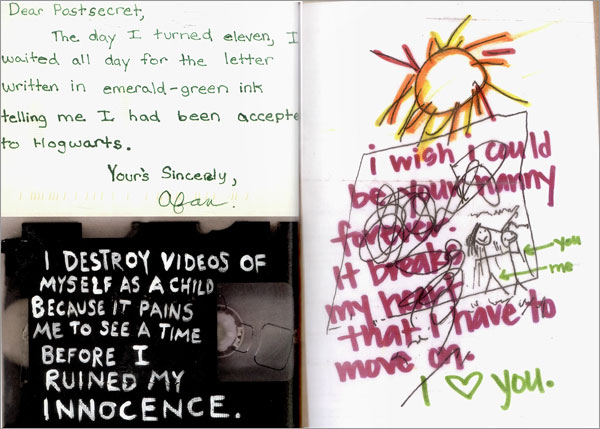 Dear Postsecret,
The day I turned eleven, I
waited all day for the letter
written in emerald-green ink
telling me I had been accepte
to Hogwarts.
Your's Sincerely,
I DESTROY VIDEOS OF
MYSELF AS A CHILD
BECAUSE IT PAINS
ME TO SEE A TIME
BEFORE I
RUINED MY
INNOCENCE.
i wish i could
be your nanny
forever.
It breaks
my heart
that I have to
move on.
I ♥ you.
you
me